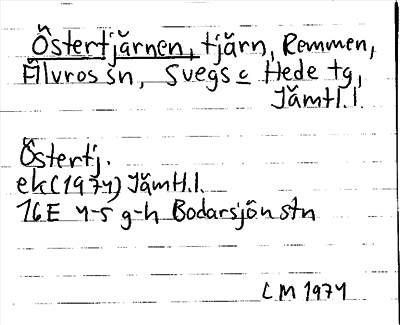 Östertjärnen, tjärn, Remmen,
Älvros sn, Svegs o Hede tg,
Jämtl.l.
Östertj.
ek(1974) Jämtl.l.
16E 4-5 g-h Bodarsjön stn
LM 1974